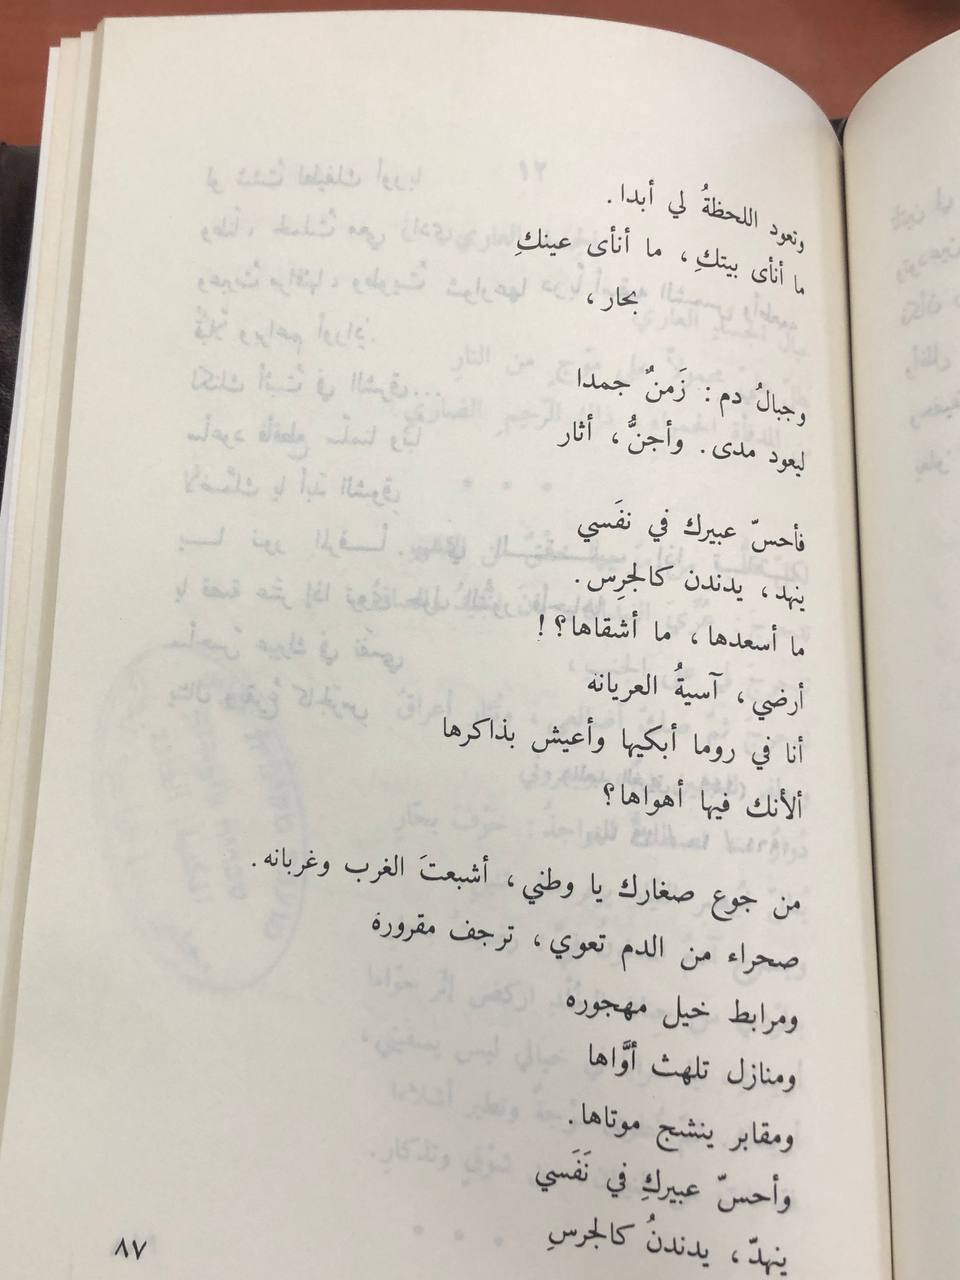 وتعود اللحظةُ لي أبدا.
ما أنأى بيتكِ، ما أنأى عينكِ
بحار،
وجبالُ دم: زَمنٌ جمدا
ليعود مدى. وأجنُّ، أثار
فأحسّ عبيرك في نفَسي
ينهد، يدندن كالجرِس.
ما أسعدها، ما أشقاها؟!
أرضي، آسيةُ العريانه
أنا في روما أبكيها وأعيش بذاكرها
ألأنك فيها أهواها؟
من جوع صغارك يا وطني، أشبعتَ الغرب وغربانه.
صحراء من الدم تعوي، ترجف مقرورة
ومرابط خيل مهجوره
ومنازل تلهث أوَّاها
ومقابر ينشج موتاها.
وأحسّ عبيركِ في نَفَسي
ينهدّ، يدندنُ كالجرسِ
٨٧